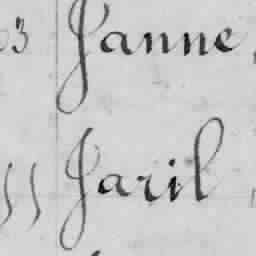 3 Janne,
55 Jaril,